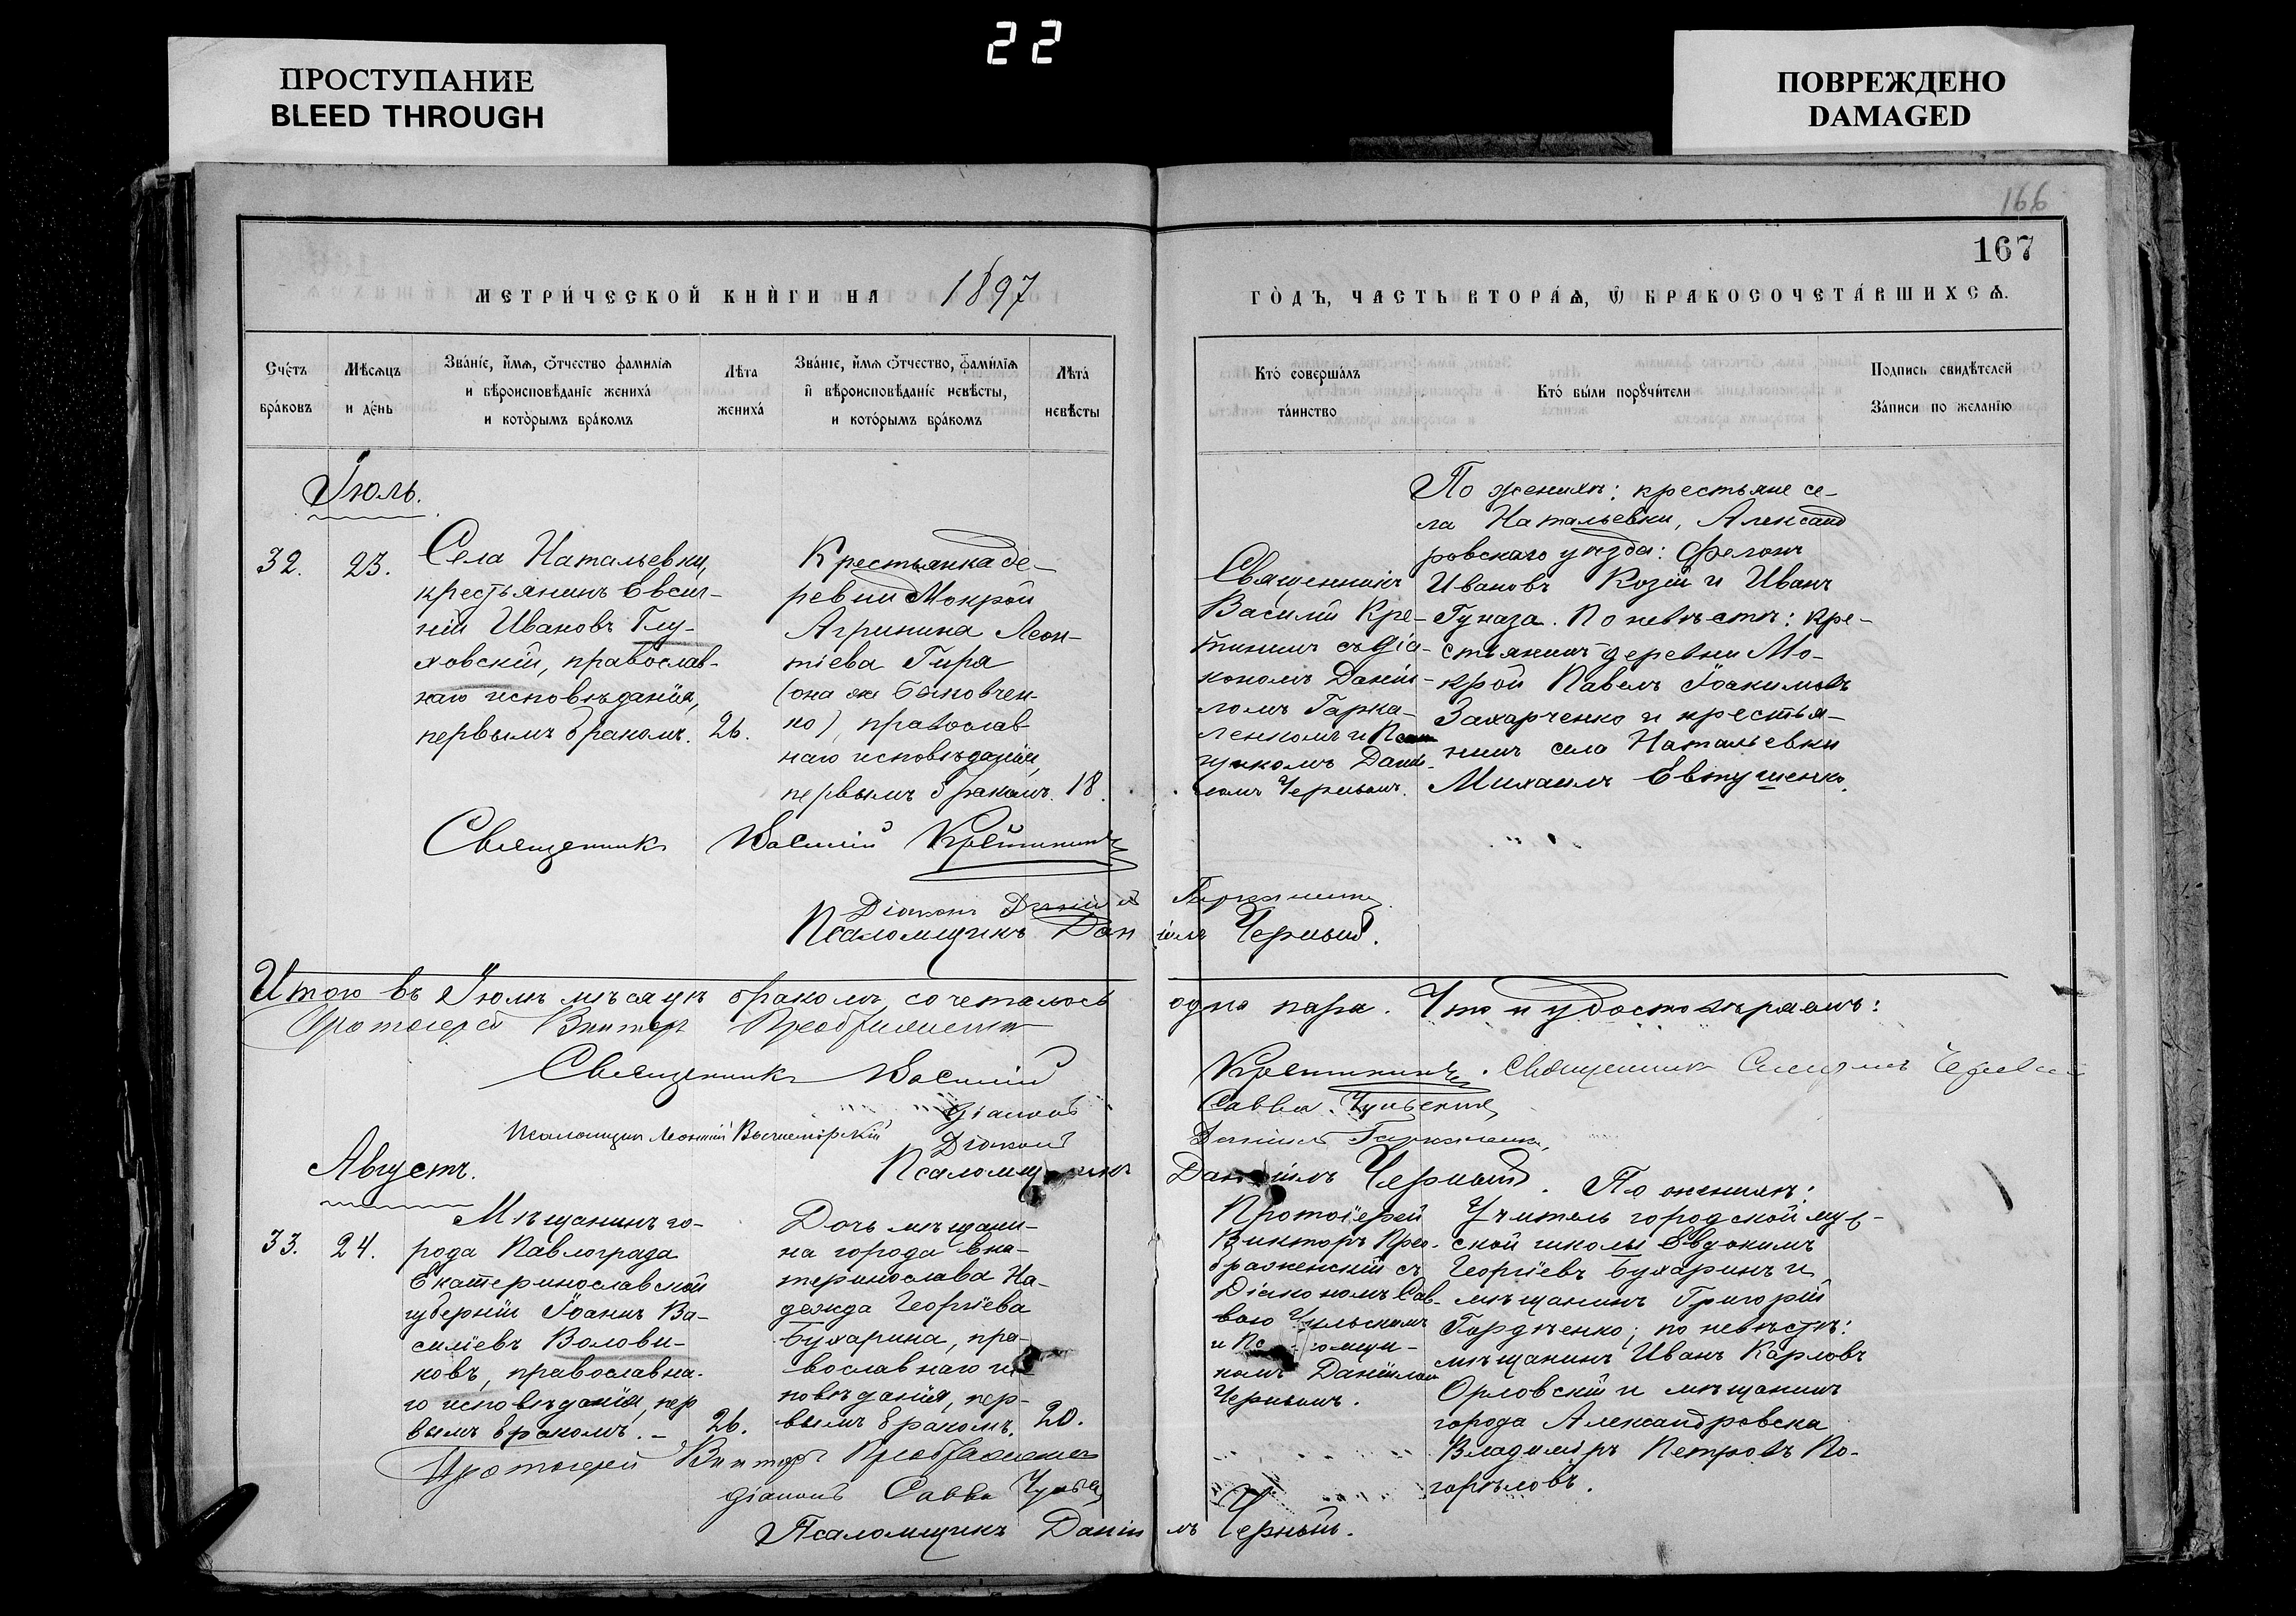 ПРОСТУПАНИЕ
BLEED THROUGH
22
ПОВРЕЖДЕНО
DAMAGED
166
167
МЕТРИ́ЧЕСКОЙ КНИ́ГИ НА 1897
ГО́ДЪ, ЧАСТЬ ВТОРА́Ѧ, Ѿ БРАКОСОЧЕТА́ВШИХСѦ.
Сче́тъ
бра́ковъ
Мѣ́сѧцъ
и де́нь
Зва́нїе, и́мѧ, ѻ́тчество фами́лїѧ
и вѣроисповѣ́данїе жениха́
и кото́рымъ бра́комъ
Лѣ́та
жениха́
Зва́нїе, и́мѧ ѻ́тчество, фами́лїѧ
и҆ вѣроисповѣ́данїе невѣ́сты,
и кото́рымъ бра́комъ
Лѣта́
невѣ́сты
Кто́ соверша́лъ
та́инство
Кто́ бы́ли порꙋчи́тели
Подпись свидѣ́телей
За́писи по жела́нїю
Іюль.
32.
23.
Села Натальевки,
крестьянинъ Евсиг-
ній Ивановъ Глу-
ховскій, православ-
наго исповѣданія,
первымъ бракомъ.
26.
Крестьянка де-
ревни Мокрой
Агрипина Леон-
тіева Гиря
(она же Быковчен-
ко), православ-
наго исповѣданія,
первымъ бракомъ.
18.
Священникъ
Василій Кре-
тининъ съ діа-
кономъ Даніи-
ломъ Гарка-
ленкомъ и
щикомъ Даніи-
ломъ Чернымъ.
По женихѣ: крестьяне се-
ла Натальевки, Александ
ровскаго уѣзда:
Ивановъ Козій и Иванъ
Гуназа. По невѣстѣ: кре-
стьянинъ деревни Мо-
крой Павелъ Іоакимовъ
Захарченко и крестья-
нинъ села Натальевки
Михаилъ Евтушенко.
Священникъ Василій Кретининъ
Діаконъ Даніилъ Гаркаленко
Псаломщикъ Даніилъ Черный.
Итого въ Іюлѣ мѣсяцѣ бракомъ сочеталось одна пара. Что и удостовѣряемъ:
Протоіерей Викторъ Преображенскій
Священникъ Василій Кретининъ. Священникъ
діаконъ Савва Чульскій
Псаломщикъ Леонтій
Діаконъ Даніилъ Гаркаленко
Псаломщикъ Даніилъ Черный.
Августъ.
33.
24.
Мѣщанинъ го-
рода Павлограда
Екатеринославской
губерніи Іоаннъ Ва-
силіевъ Волови-
ковъ, православна-
го исповѣданія, пер
вымъ бракомъ.-
26.
Дочь мѣщани-
на города Ека-
теринослава На-
дежда Георгіева
Бухарина, пра-
вославнаго ис
повѣданія, пер-
вымъ бракомъ.
20.
Протоіерей
Викторъ Прео-
браженскій съ
Діакономъ Сав-
вою Чульскимъ
и Псаломщи-
комъ Даніиломъ
Чернымъ.
По женихѣ:
Учитель городской муж-
ской школы Евдокимъ
Георгіевъ Бухаринъ и
мѣщанинъ Григорій
Гордѣенко; по невѣстѣ:
мѣщанинъ Иванъ Карловъ
Орловскій и мѣщанинъ
города Александровска
Владиміръ Петровъ По-
горѣловъ.
Протоіерей Викторъ Преображенскій
діаконъ Савва
Псаломщикъ Даніилъ Черный.